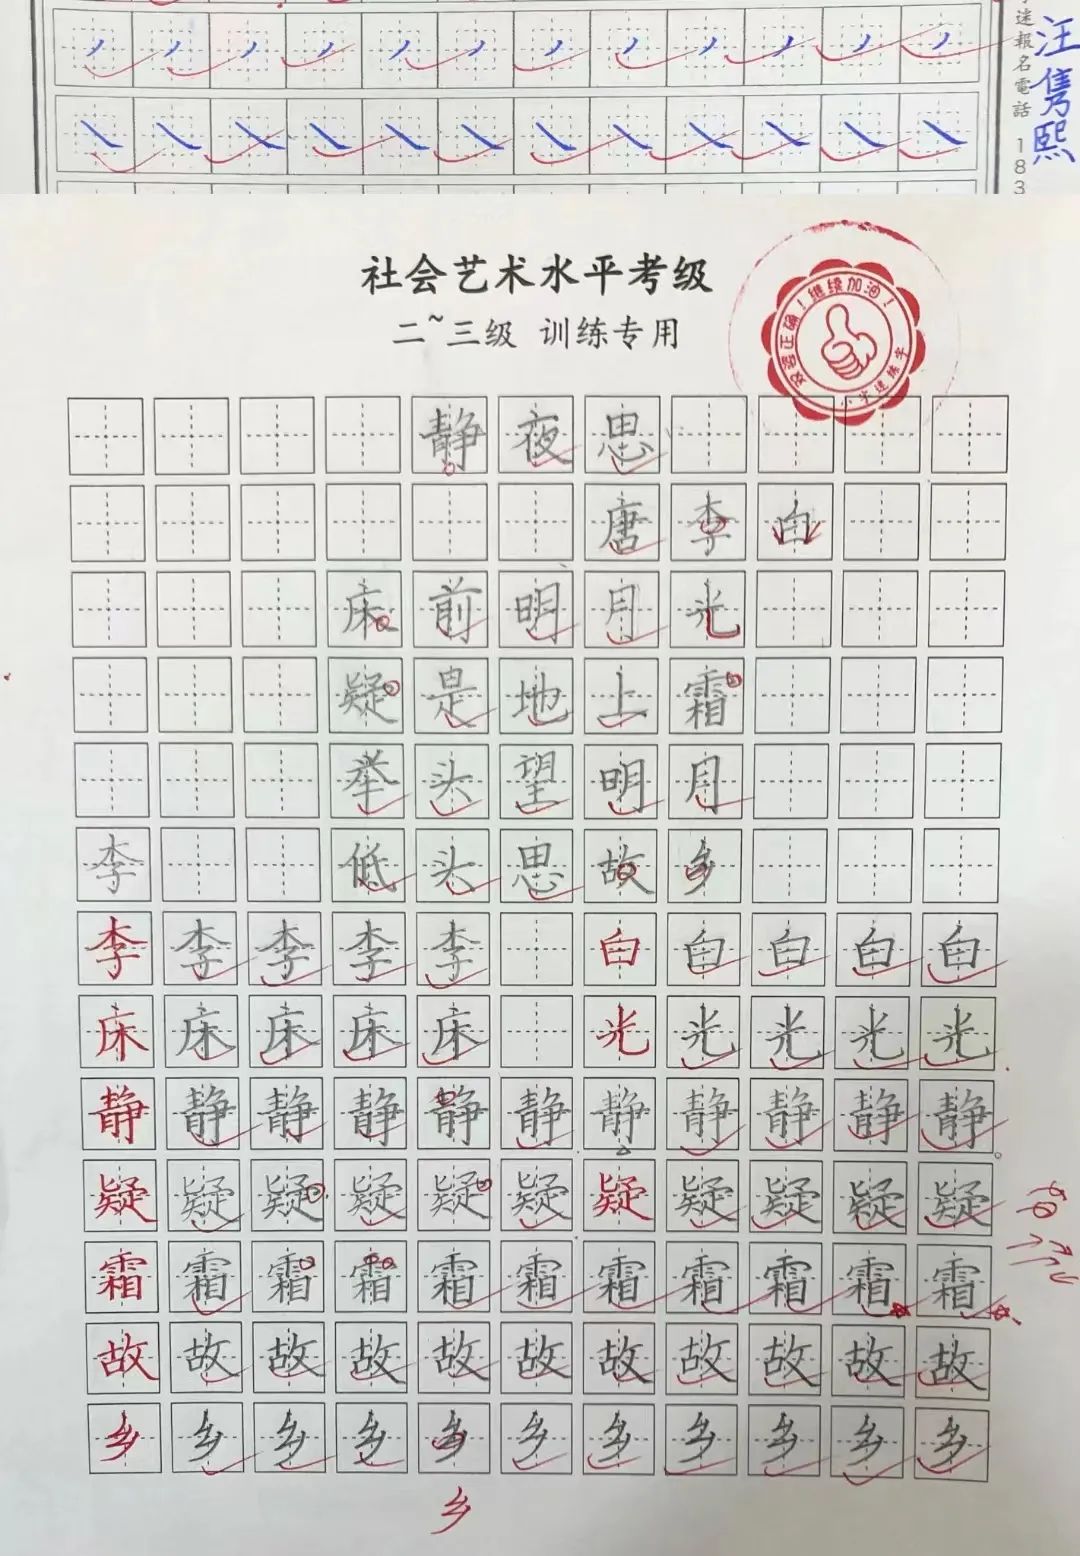 迷報名電話 183
汪隽熙
社会艺术水平考级
二~三级 训练专用
效君正确！继续加油！
小字迷练字
静夜思
唐李白
床前明月光
疑是地上霜
举头望明月
李 低头思故乡
李李李李李 白白白白白
床床床床床 光光光光光
静静静静静静静静静静静
疑疑疑疑疑疑疑疑疑疑疑
霜霜霜霜霜霜霜霜霜霜霜
故故故故故故故故故故故
乡乡乡乡乡乡乡乡乡乡乡
乡